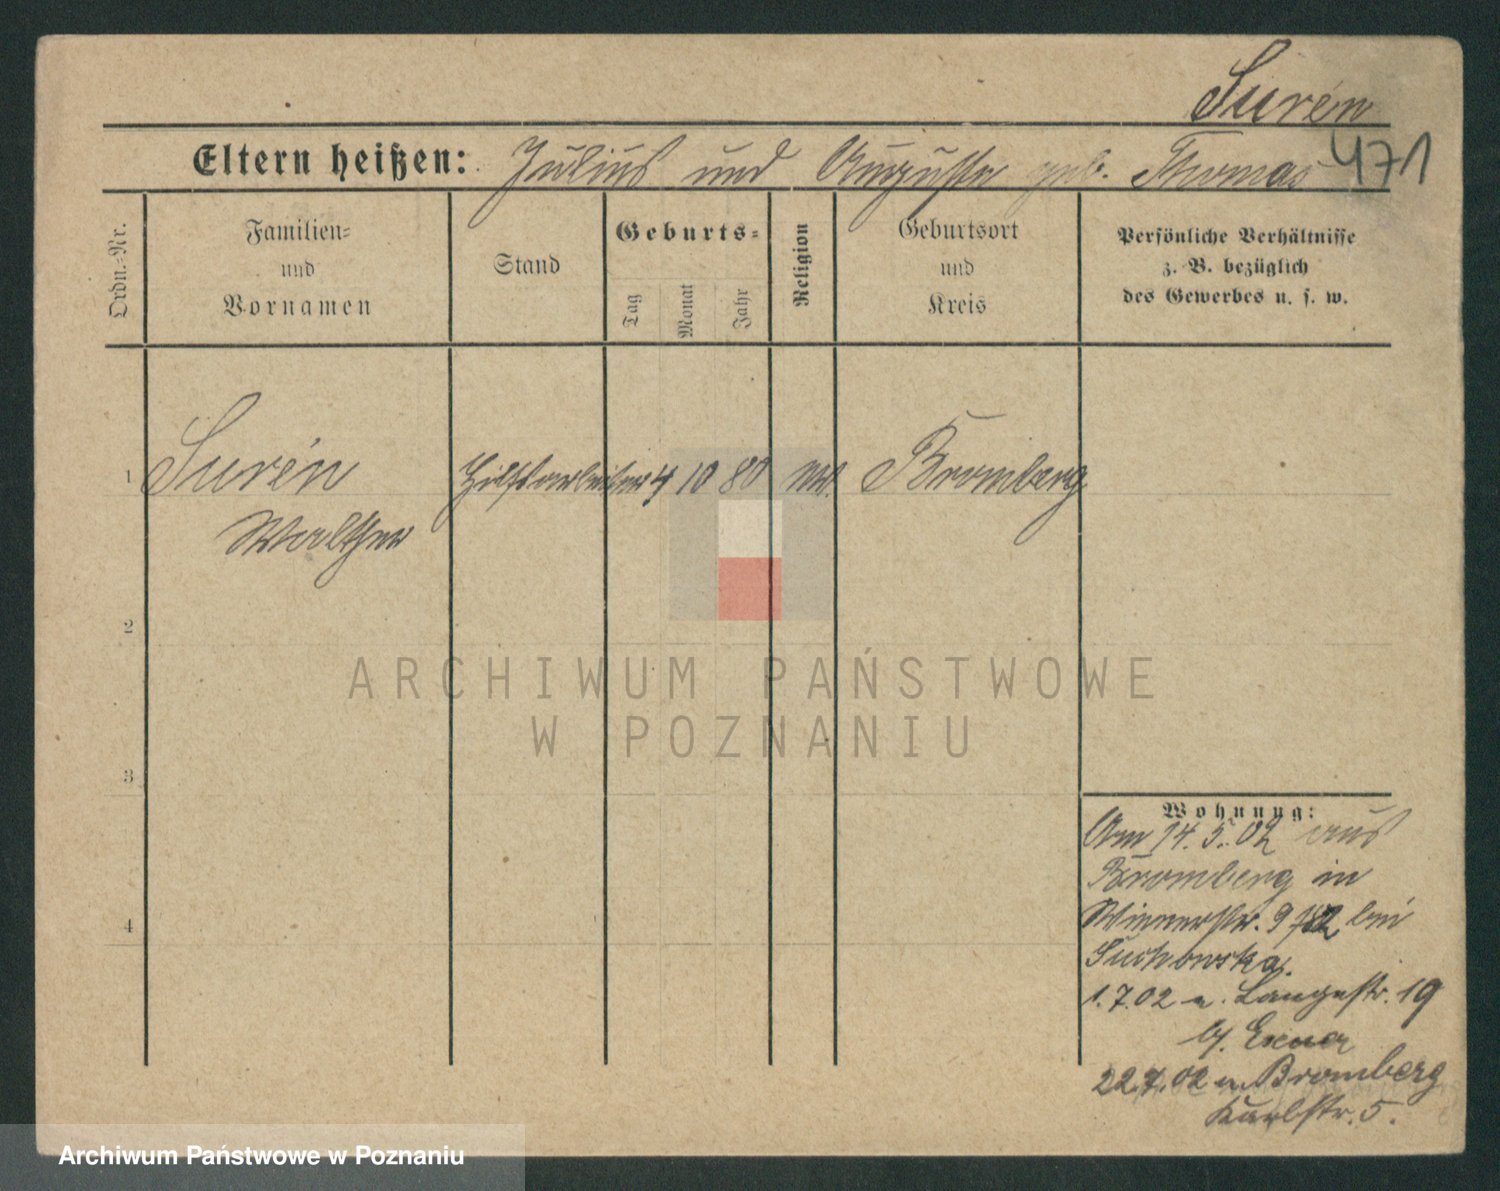 Surén
471
Eltern heißen: Julius und Auguste geb. Thomas
Ordn.=Nr.
Familien=
und
Vornamen
Stand
Geburts=
Tag
Monat
Jahr
Religion
Geburtsort
und
Kreis
Persönliche Verhältnisse
z. B. bezüglich
des Gewerbes u. s. w.
1 Surén Hilfsarbeiter 4 10 80 ev. Bromberg
Walther
2
3
4
Wohnung:
Am 14. 5. 02 aus
Bromberg in
Wienerstr. 9 bei
Suchowska.
1.7.02 n. Langestr. 19
b/. Exner
22.7.02 n. Bromberg
Karlstr. 5.
ARCHIWUM PAŃSTWOWE
W POZNANIU
Archiwum Państwowe w Poznaniu